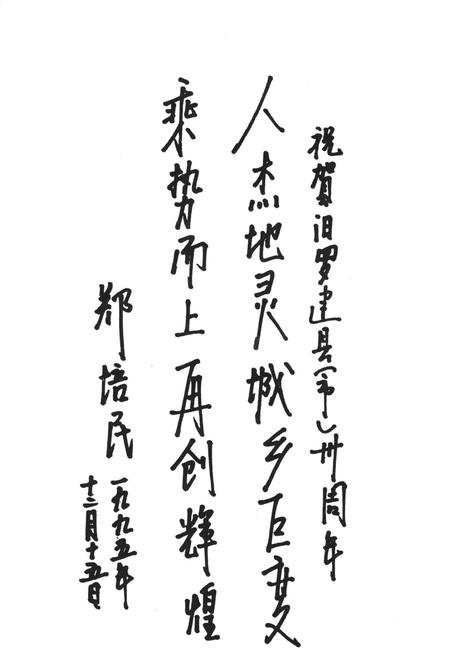 祝賀汨罗建县(市)卅周年
人杰地灵城乡巨变
乘势而上再创辉煌
郑培民
一九九五年
十二月十五日